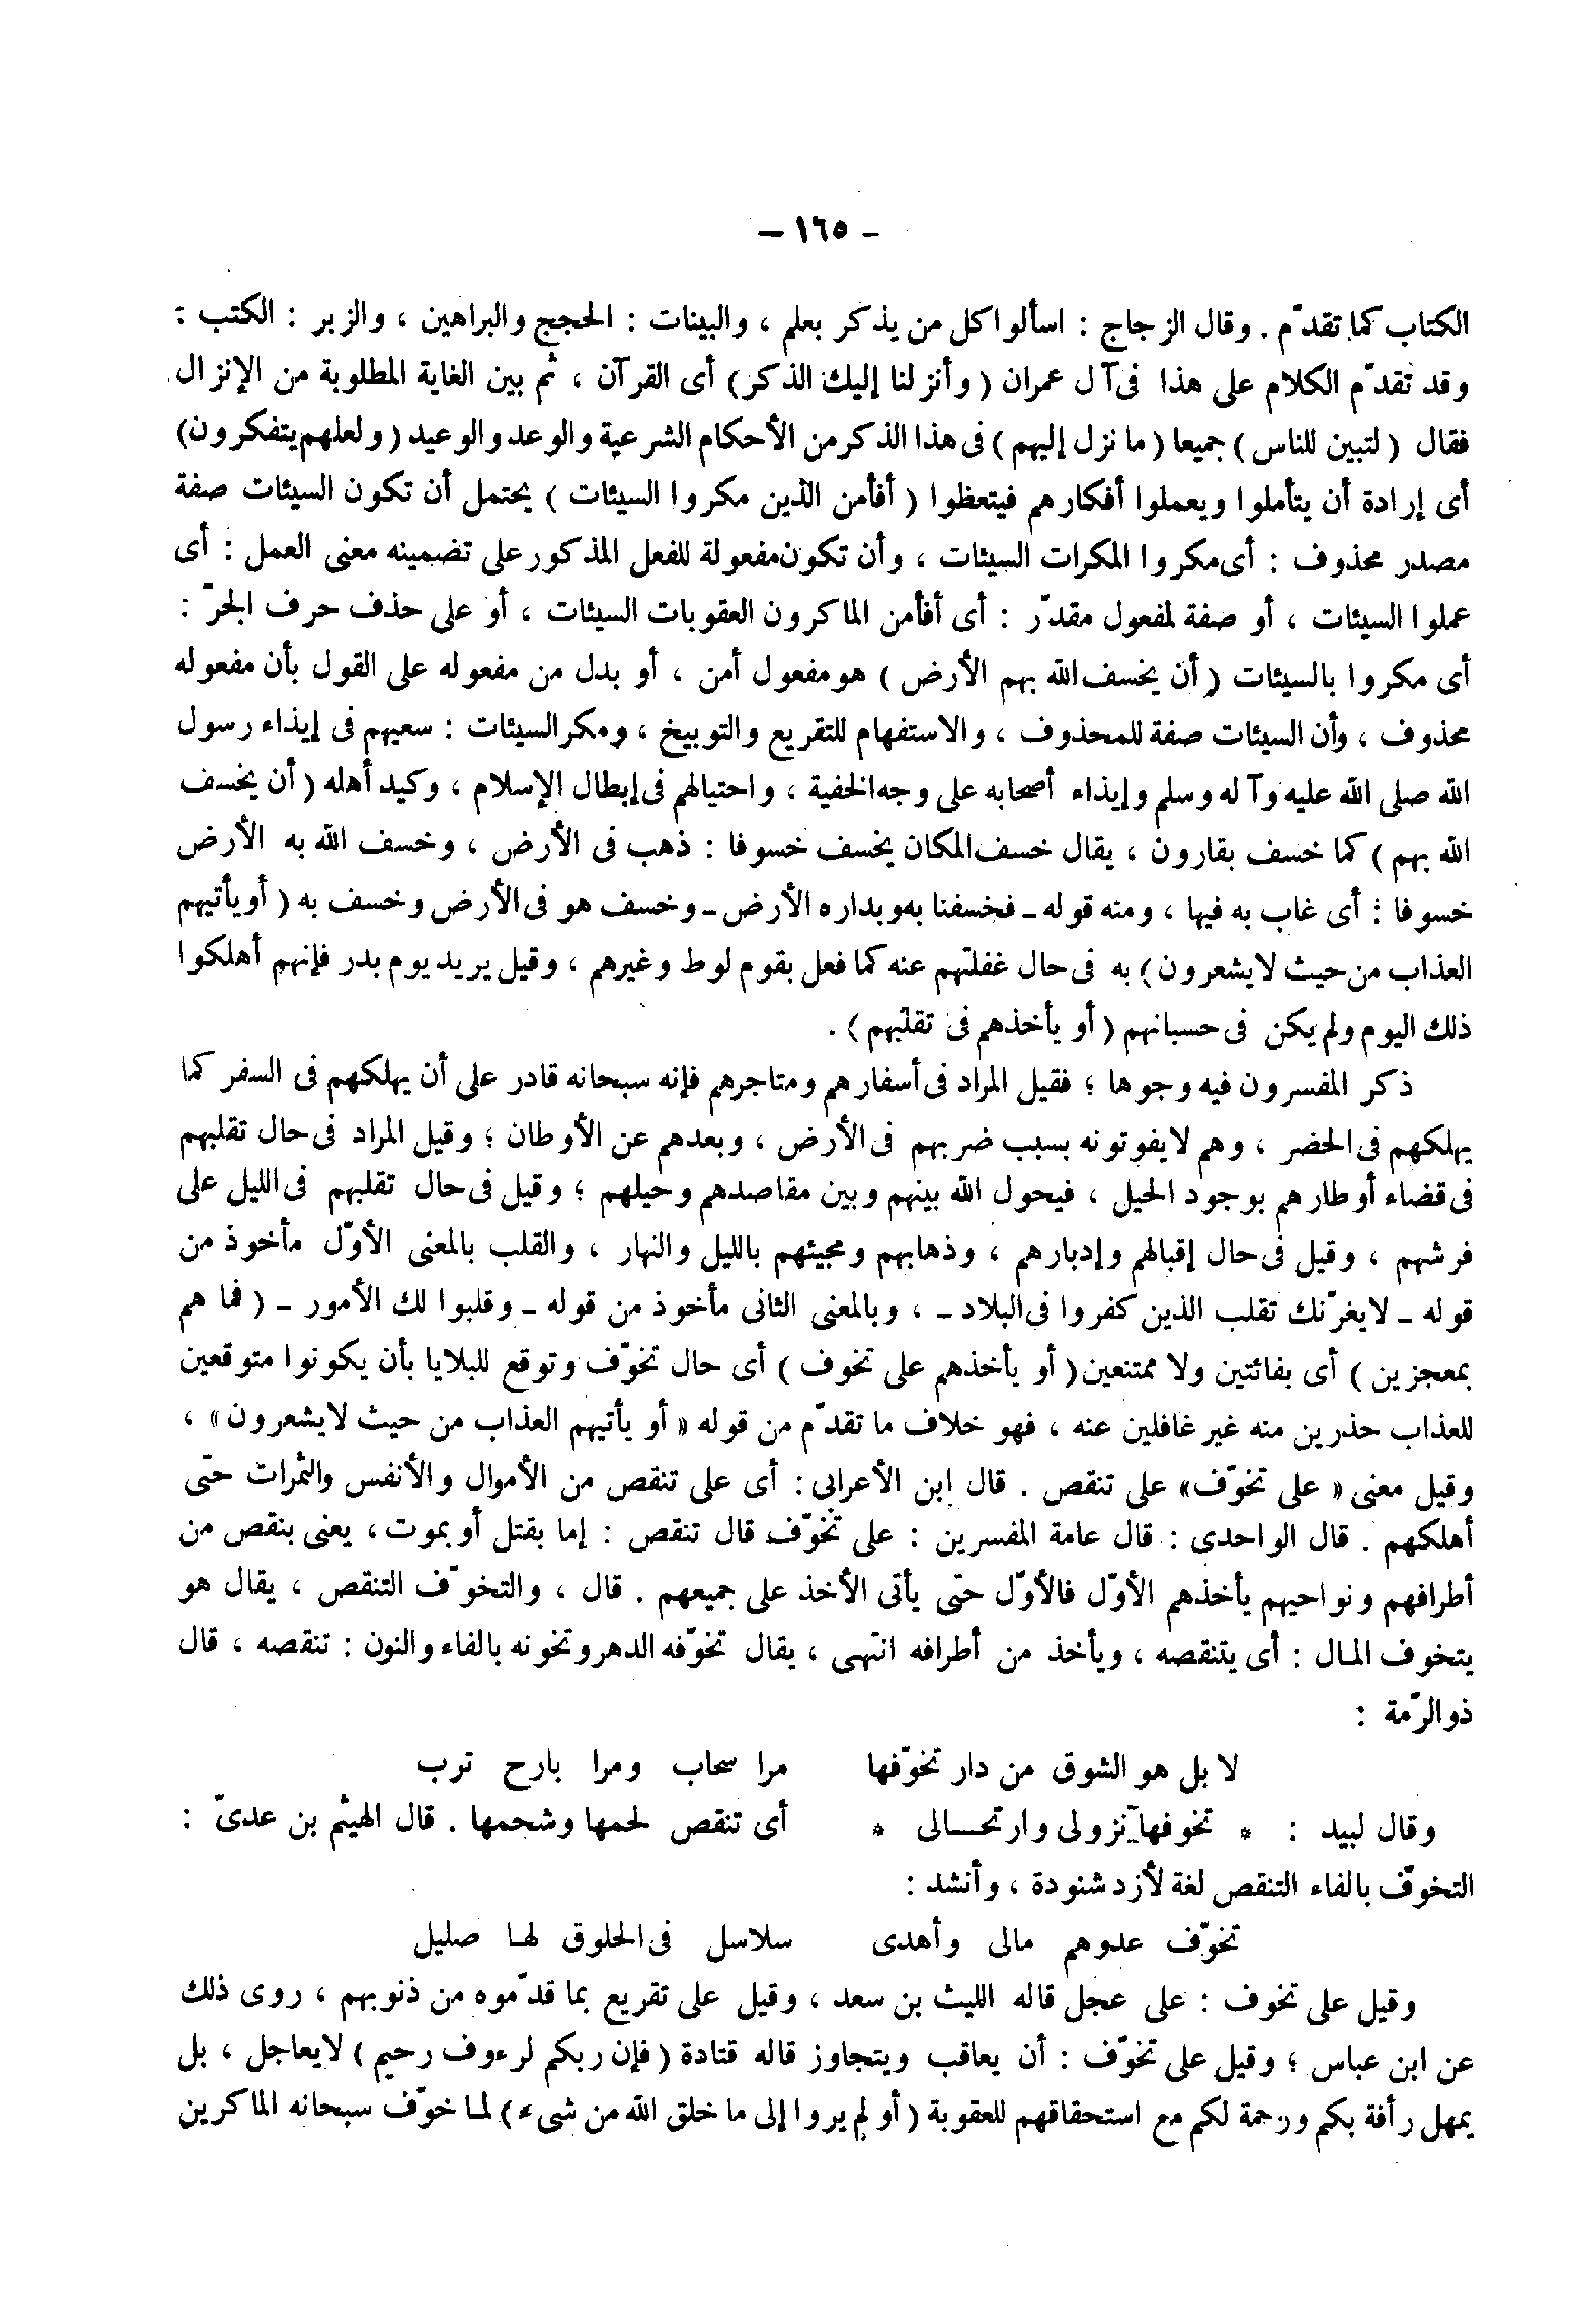 - ١٦٥ -
الكتاب كما تقدّم . وقال الزجاج : اسألوا كل من يذكر بعلم ، والبينات : الحجج والبراهين ، والزبر : الكتب :
وقد تقدّم الكلام على هذا فى آل عمران ( وأنزلنا إليك الذكر ) أى القرآن ، ثم بين الغاية المطلوبة من الإنزال
فقال ( لتبين للناس ) جميعا ( ما نزل إليهم ) فى هذا الذكر من الأحكام الشرعية والوعد والوعيد ( ولعلهم يتفكرون )
أى إرادة أن يتأملوا ويعملوا أفكارهم فيتعظوا ( أفأمن الذين مكروا السيئات ) يحتمل أن تكون السيئات صفة
مصدر محذوف : أى مكروا المكرات السيئات ، وأن تكون مفعولة للفعل المذكور على تضمينه معنى العمل : أى
عملوا السيئات ، أو صفة لمفعول مقدّر : أى أفأمن الماكرون العقوبات السيئات ، أو على حذف حرف الجرّ :
أى مكروا بالسيئات ( أن يخسف الله بهم الأرض ) هو مفعول أمن ، أو بدل من مفعوله على القول بأن مفعوله
محذوف ، وأن السيئات صفة للمحذوف ، والاستفهام للتقريع والتوبيخ ، ومكر السيئات : سعيهم فى إيذاء رسول
الله صلى الله عليه وآله وسلم وإيذاء أصحابه على وجه الخفية ، واحتيالهم فى إبطال الإسلام ، وكيد أهله ( أن يخسف
الله بهم ) كما خسف بقارون ، يقال خسف المكان يخسف خسوفا : ذهب فى الأرض ، وخسف الله به الأرض
خسوفا : أى غاب به فيها ، ومنه قوله - فخسفنا به وبداره الأرض - وخسف هو فى الأرض وخسف به ( أو يأتيهم
العذاب من حيث لا يشعرون ) به فى حال غفلتهم عنه كما فعل بقوم لوط وغيرهم ، وقيل يريد يوم بدر فإنهم أهلكوا
ذلك اليوم ولم يكن فى حسبانهم ( أو يأخذهم فى تقلبهم ) .
ذكر المفسرون فيه وجوها ؛ فقيل المراد فى أسفارهم ومتاجرهم فإنه سبحانه قادر على أن يهلكهم فى السفر كما
يهلكهم فى الحضر ، وهم لا يفوتونه بسبب ضربهم فى الأرض ، وبعدهم عن الأوطان ؛ وقيل المراد فى حال تقلبهم
فى قضاء أوطارهم بوجود الحيل ، فيحول الله بينهم وبين مقاصدهم وحيلهم ؛ وقيل فى حال تقلبهم فى الليل على
فرشهم ، وقيل فى حال إقبالهم وإدبارهم ، وذهابهم ومجيئهم بالليل والنهار ، والقلب بالمعنى الأوّل مأخوذ من
قوله - لا يغرّنك تقلب الذين كفروا فى البلاد - ، وبالمعنى الثانى مأخوذ من قوله - وقلبوا لك الأمور - ( فما هم
بمعجزين ) أى بفائتين ولا ممتنعين ( أو يأخذهم على تخوف ) أى حال تخوّف وتوقع للبلايا بأن يكونوا متوقعين
للعذاب حذرين منه غير غافلين عنه ، فهو خلاف ما تقدّم من قوله « أو يأتيهم العذاب من حيث لا يشعرون » ،
وقيل معنى « على تخوّف » على تنقص . قال ابن الأعرابى : أى على تنقص من الأموال والأنفس والثمرات حتى
أهلكهم . قال الواحدى : قال عامة المفسرين : على تخوّف قال تنقص : إما بقتل أو بموت ، يعنى بنقص من
أطرافهم ونواحيهم يأخذهم الأوّل فالأوّل حتى يأتى الأخذ على جميعهم . قال ، والتخوّف التنقص ، يقال هو
يتخوف المال : أى يتنقصه ، ويأخذ من أطرافه انتهى ، يقال تخوّفه الدهر وتخونه بالفاء والنون : تنقصه ، قال
ذو الرّمة :
لا بل هو الشوق من دار تخوّفها مرا سحاب ومرا بارح ترب
وقال لبيد : * تخوفها نزولى وارتحالى * أى تنقص لحمها وشحمها . قال الهيثم بن عدىّ :
التخوّف بالفاء التنقص لغة لأزد شنودة ، وأنشد :
تخوّف عدوهم مالى وأهدى سلاسل فى الحلوق لها صليل
وقيل على تخوف : على عجل قاله الليث بن سعد ، وقيل على تقريع بما قدّموه من ذنوبهم ، روى ذلك
عن ابن عباس ؛ وقيل على تخوّف : أن يعاقب ويتجاوز قاله قتادة ( فإن ربكم لرءوف رحيم ) لا يعاجل ، بل
يمهل رأفة بكم ورحمة لكم مع استحقاقهم للعقوبة ( أو لم يروا إلى ما خلق الله من شىء ) لما خوّف سبحانه الماكرين